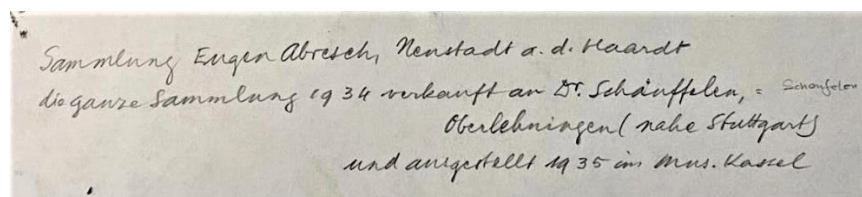 Sammlung Eugen Abresch, Neustadt a. d. Haardt
die ganze Sammlung 1934 verkauft an Dr. Schäuffelen, = Schaufelen
Oberlehningen (nahe Stuttgart)
und ausgestellt 1935 im Mus. Kassel